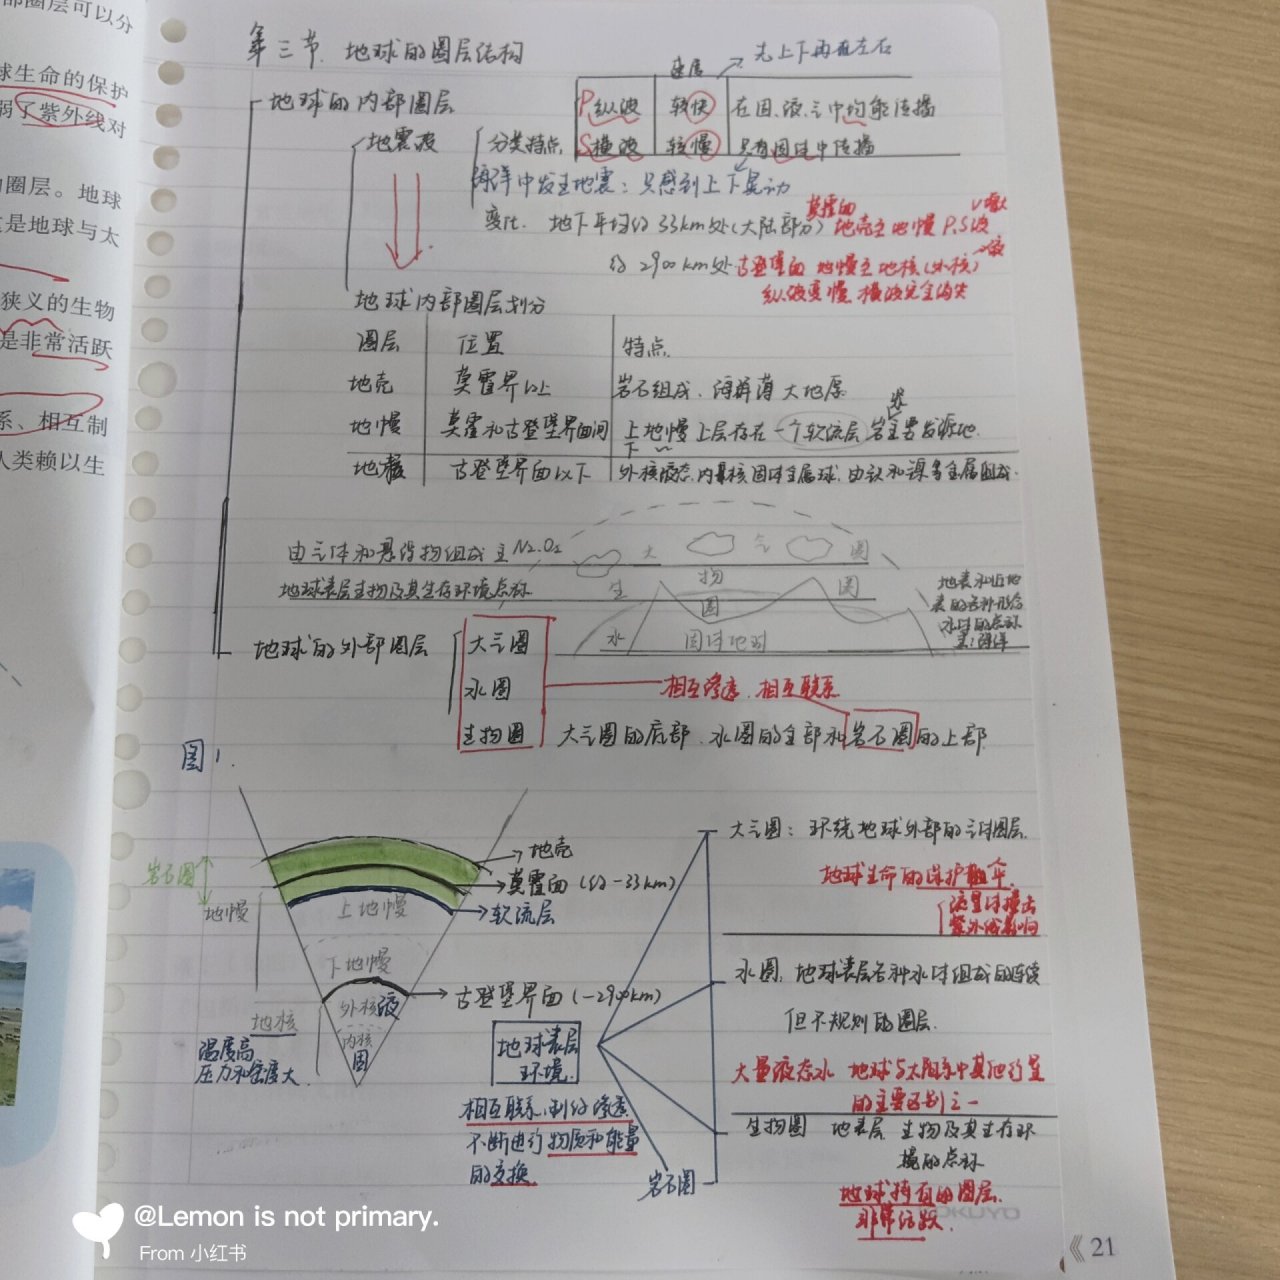 部圈层可以分
球生命的保护
弱了紫外线对
圈层。地球
是地球与太
狭义的生物
是非常活跃
系、相互制
人类赖以生
第三节. 地球的圈层结构
先上下再左右
速度
地球的内部圈层
P纵波 较快 在固、液、气中均能传播
地震波 分类特点 S横波 较慢 只有固体中传播
海洋中发生地震：只感到上下晃动
莫霍面
变化. 地下平均约33km处(大陆部分) 地壳至地幔 P.S波
约2900km处 古登堡面 地幔至地核(外核)
纵波变慢 横波完全消失
地球内部圈层划分
圈层 位置 特点
地壳 莫霍界以上 岩石组成, 海洋薄大地厚
地幔 莫霍和古登堡界面间 上地幔上层存在一个软流层 岩浆主要发源地.
下
地核 古登堡界面以下 外核液态, 内核固体金属球, 由铁和镍等金属组成.
由气体和悬浮物组成 主N₂.O₂ 大 气 圈
地球表层生物及其生存环境总称 生 物 圈
圈
地表和近地
表的各种形态
水体的总称
主:海洋
水 固体地球
地球的外部圈层 大气圈
水圈 相互渗透. 相互联系
生物圈 大气圈的底部. 水圈的全部和岩石圈的上部
图1.
岩石圈
地幔
地壳
莫霍面(约-33km)
上地幔 软流层
下地幔
外核液 古登堡界面(-2900km)
地核
内核
固
温度高
压力和密度大.
地球表层
环境.
相互联系, 制约渗透
不断进行物质和能量
的交换.
大气圈: 环绕地球外部的气体圈层.
地球生命的保护伞.
流星体撞击
紫外线影响
水圈. 地球表层各种水体组成的连续
但不规则的圈层.
大量液态水 地球与太阳系中其他行星
的主要区别之一
生物圈 地表层 生物及其生存环
境的总称
地球特有的圈层.
非常活跃.
岩石圈
KOKUYO
21
@Lemon is not primary.
From 小红书